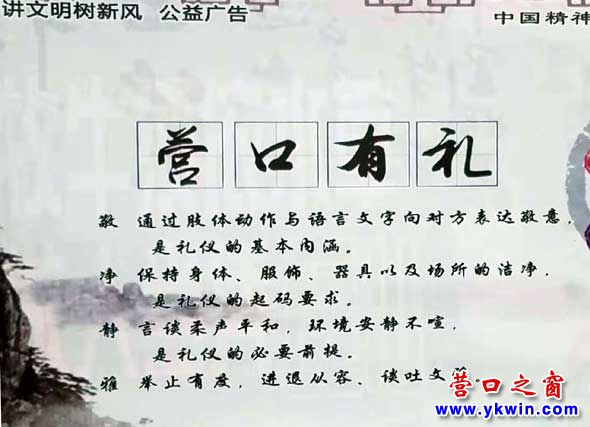 讲文明树新风 公益广告
中国精神
营口有礼
敬 通过肢体动作与语言文字向对方表达敬意,
是礼仪的基本内涵。
净 保持身体、服饰、器具以及场所的洁净,
是礼仪的起码要求。
静 言谈柔声平和,环境安静不喧,
是礼仪的必要前提。
雅 举止有度,进退从容、谈吐文
营口之窗
www.ykwin.com